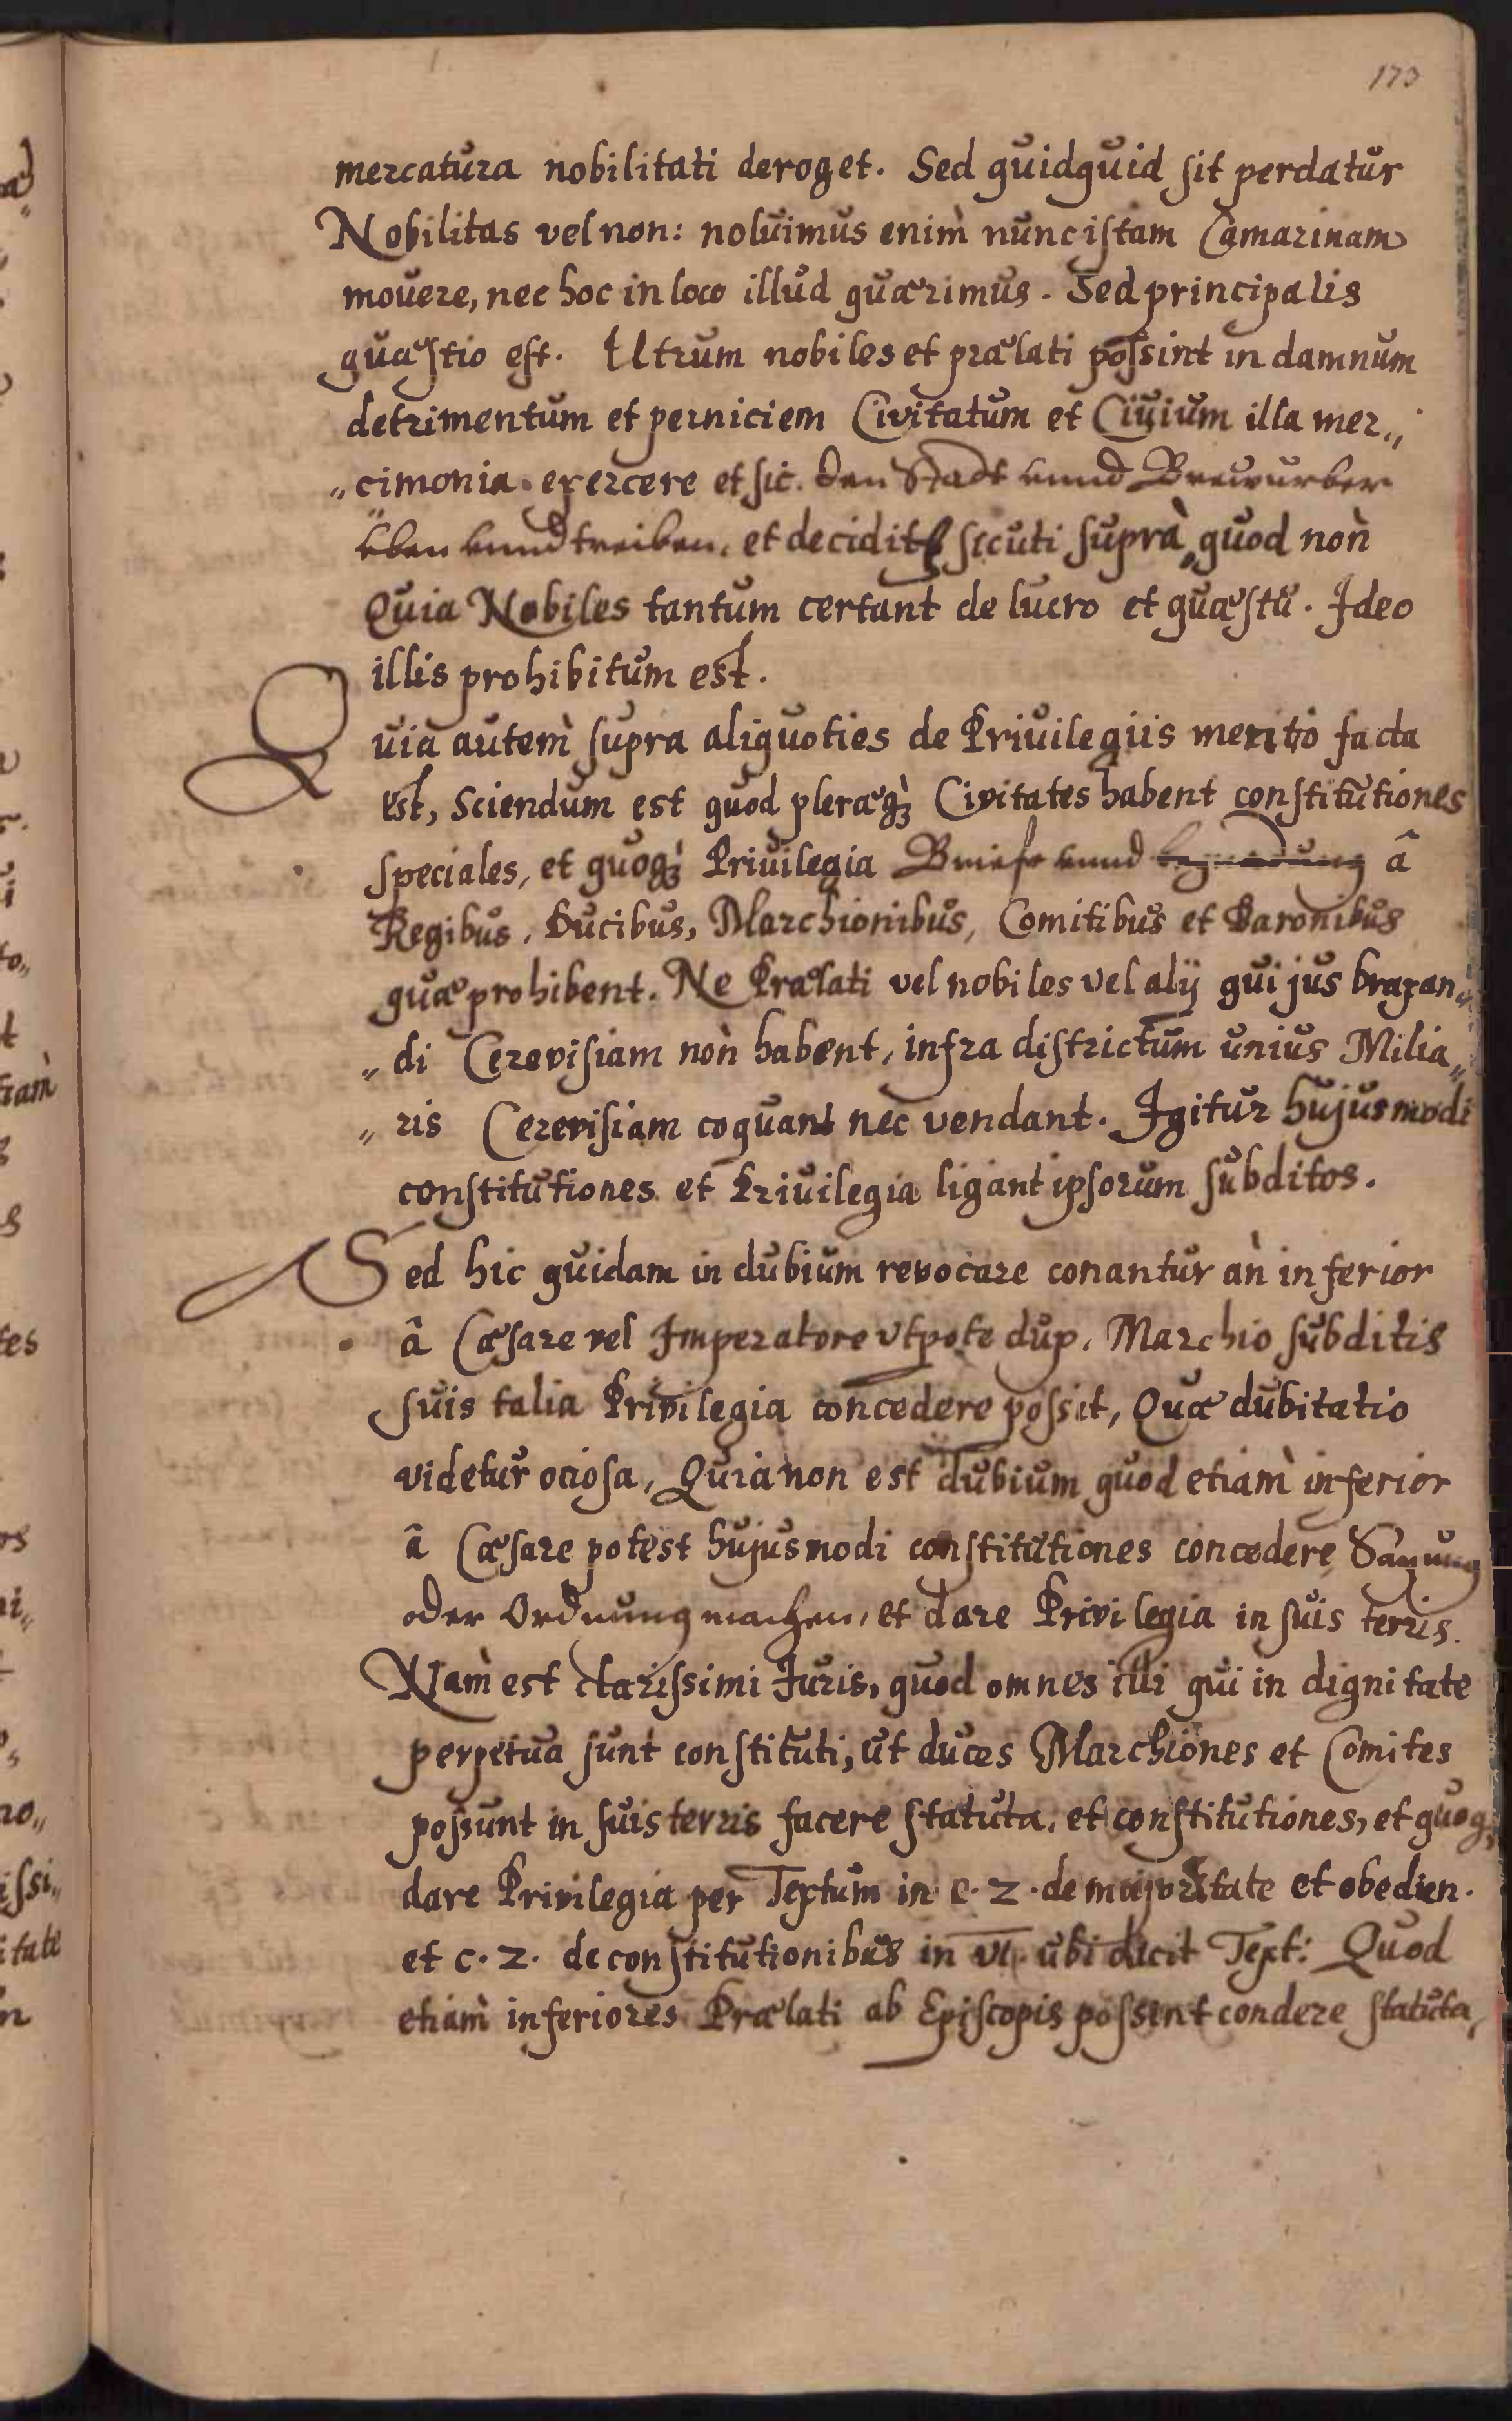 173
mercatura nobilitati deroget. Sed quidquid sit perdatur
Nobilitas vel non: noluimus enim̀ nunc istam Camarinam
mouere, nec hoc in loco illud quærimus. Sed principalis
quæstio est. Utrum nobiles et prælati possint in damnum
detrimentum et perniciem Civitatum et Ciuium illa mer„
„cimonia exercere et sic. den Stadt vnnd
vben vnnd treiben, et decidit sicuti suprà quod non̄
Quia Nobiles tantum certant de lucro et quæstu. Ideo
illis prohibitum est.
Quia autem̀ supra aliquoties de Priuilegiis merito facta
est, Sciendum est quod pleræq̀ꝫ Civitates habent constitutiones
speciales, et quoqꝫ Priuilegia Briefe vnnd begnadung â
Regibus, Ducibus, Marchionibus, Comitibus et Baronibus
quæ prohibent. Ne Prælati vel nobiles vel alÿ qui jus braxan„
„di Cerevisiam non̄ habent, infra districtum unius Milia„
„ris Cerevisiam coquant nec vendant. Igitur hujusmodi
constitutiones et Priuilegia ligant ipsorum subditos.
Sed hic quidam in dubium revocare conantur an̄ inferior
â Cæsare vel Imperatore vtpote dux, Marchio subditis
suis talia Privilegia concedere possit, Quæ dubitatio
videtur ociosa, Quia non est dubium quod etiam̀ inferior
â Cæsare potest hujusmodi constitutiones concedere, Sazung
oder Ordnung machen, et dare Privilegia in suis terris.
Nam̀ est clarissimi Juris, quod omnes illi qui in dignitate
perpetua sunt constituti, ut duces Marchiones et Comites
possunt in suis terris facere statuta, et constitutiones, et quoqꝫ
dare Privilegia per Textum in c. 2. de majoritate et obedien.
et c. 2. de constitutionibus in vi. ubi dicit Text: Quod
etiam̀ inferiores Prælati ab Episcopis possint condere statuta,